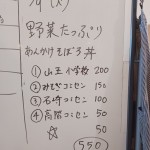 1/9 (火)
野菜たっぷり
あんかけそぼろ丼
① 山王小学校 200
② みどりコミセン 150
③ 石崎コミセン 100
④ 高階コミセン 50
☆ 50
550